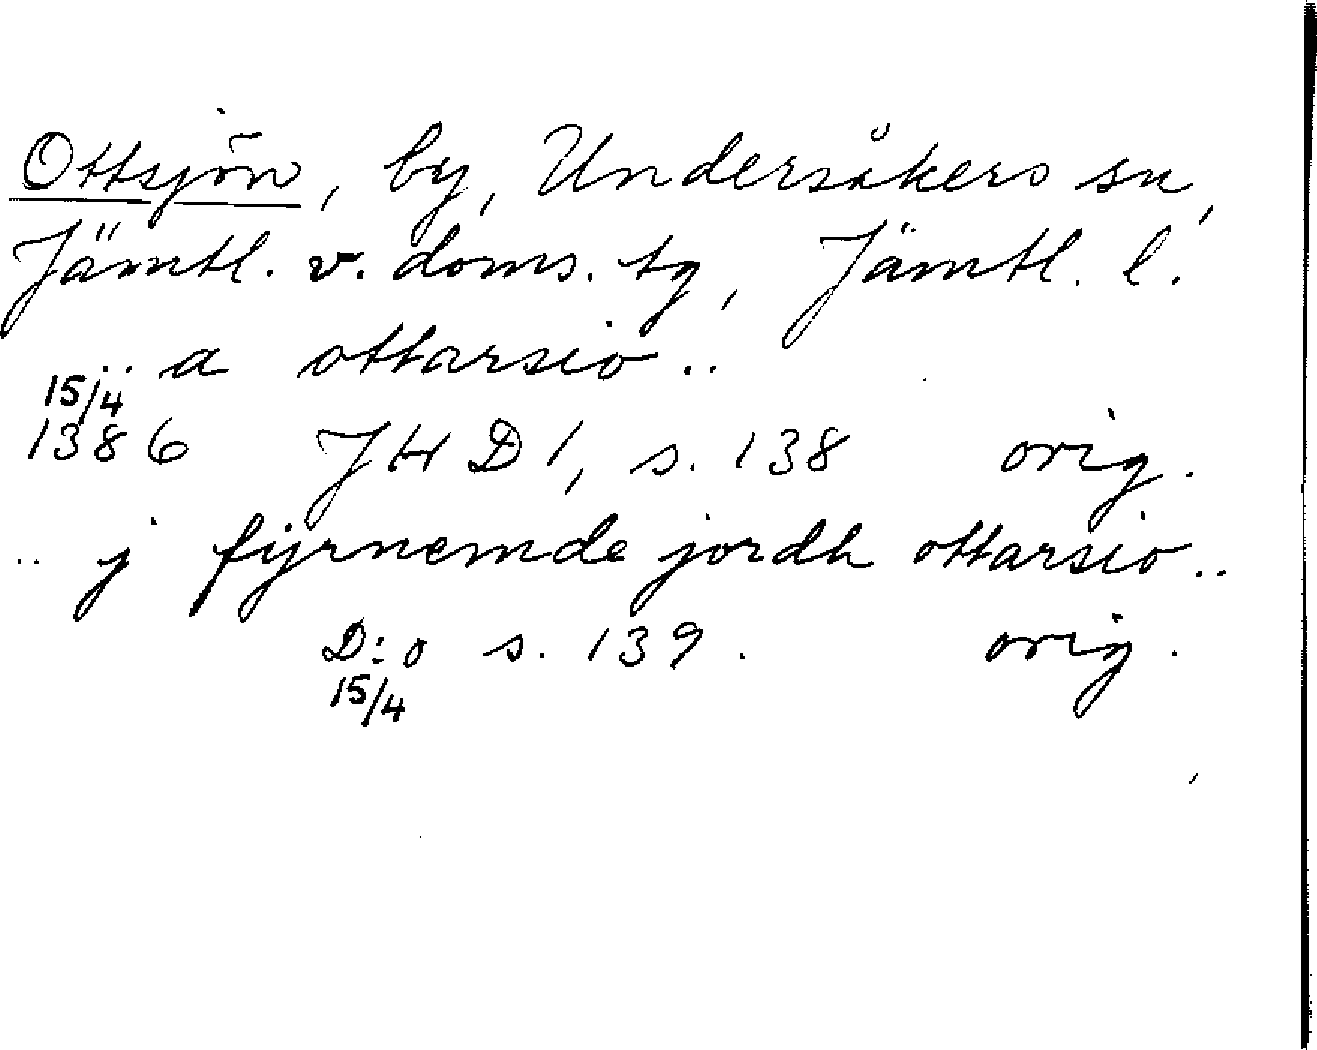 Ottsjön, by, Undersåkers sn,
Jämtl. v. doms. tg, Jämtl. l.
.. a ottarsio ..
15/4
1386 JHD 1, s. 138 orig.
.. j fyrnemde jordh ottarsio ..
D:o s. 139. orig.
15/4